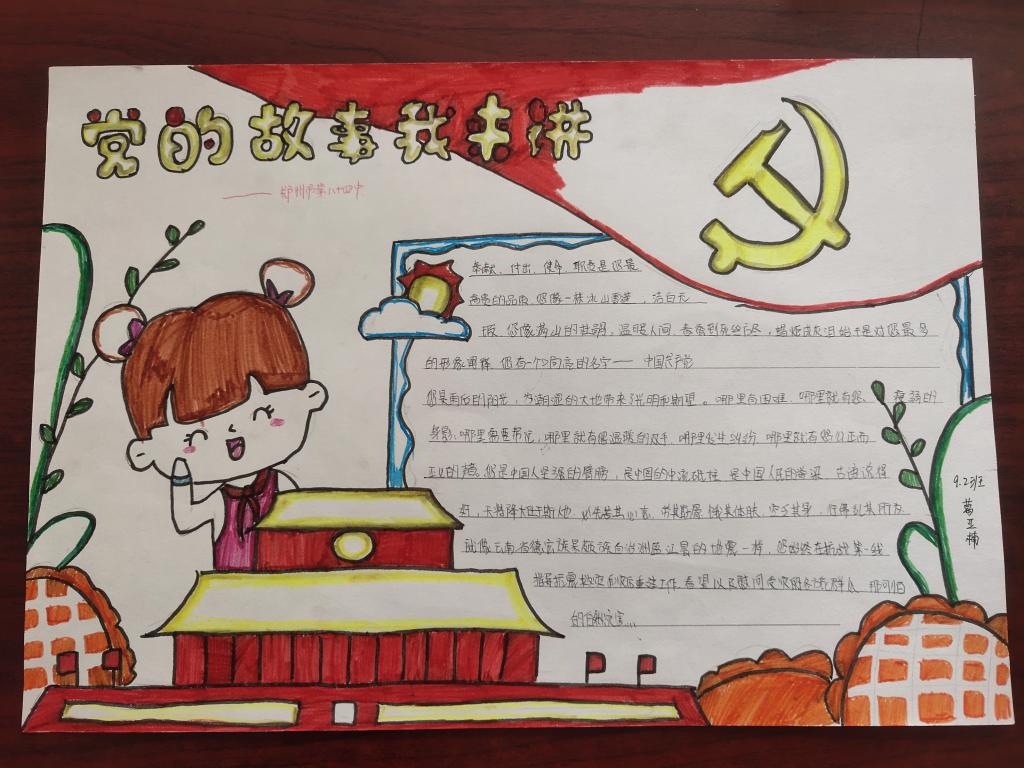 党的故事我来讲
—— 郑州市第八十四中
奉献、付出、使命、职责是您最
高贵的品质,您像一株冰山雪莲,洁白无
瑕,您像满山的杜鹃,温暖人间,春蚕到死丝方尽,蜡炬成灰泪始干是对您最多
的形象阐释,您有一个共同的名字——中国共产党
您是雨后的阳光,为潮湿的大地带来光明和期望。哪里有困难,哪里就有您
身影,哪里需要帮忙,哪里就有您温暖的双手,哪里发生纠纷,哪里就有您公正而
您是中国人坚强的臂膀,是中国的中流砥柱,是中国人民的脊梁,古语说得
好,天将降大任于斯人也,必先苦其心志,劳其筋骨,饿其体肤,空乏其身,行拂乱其所为
就像云南省德宏族景颇族自治洲盈江县的地震一样,您始终在抗战第一线
指挥抗震救灾和灾后重建工作,看望以及慰问受灾的各族群众,
9.23班
葛亚楠